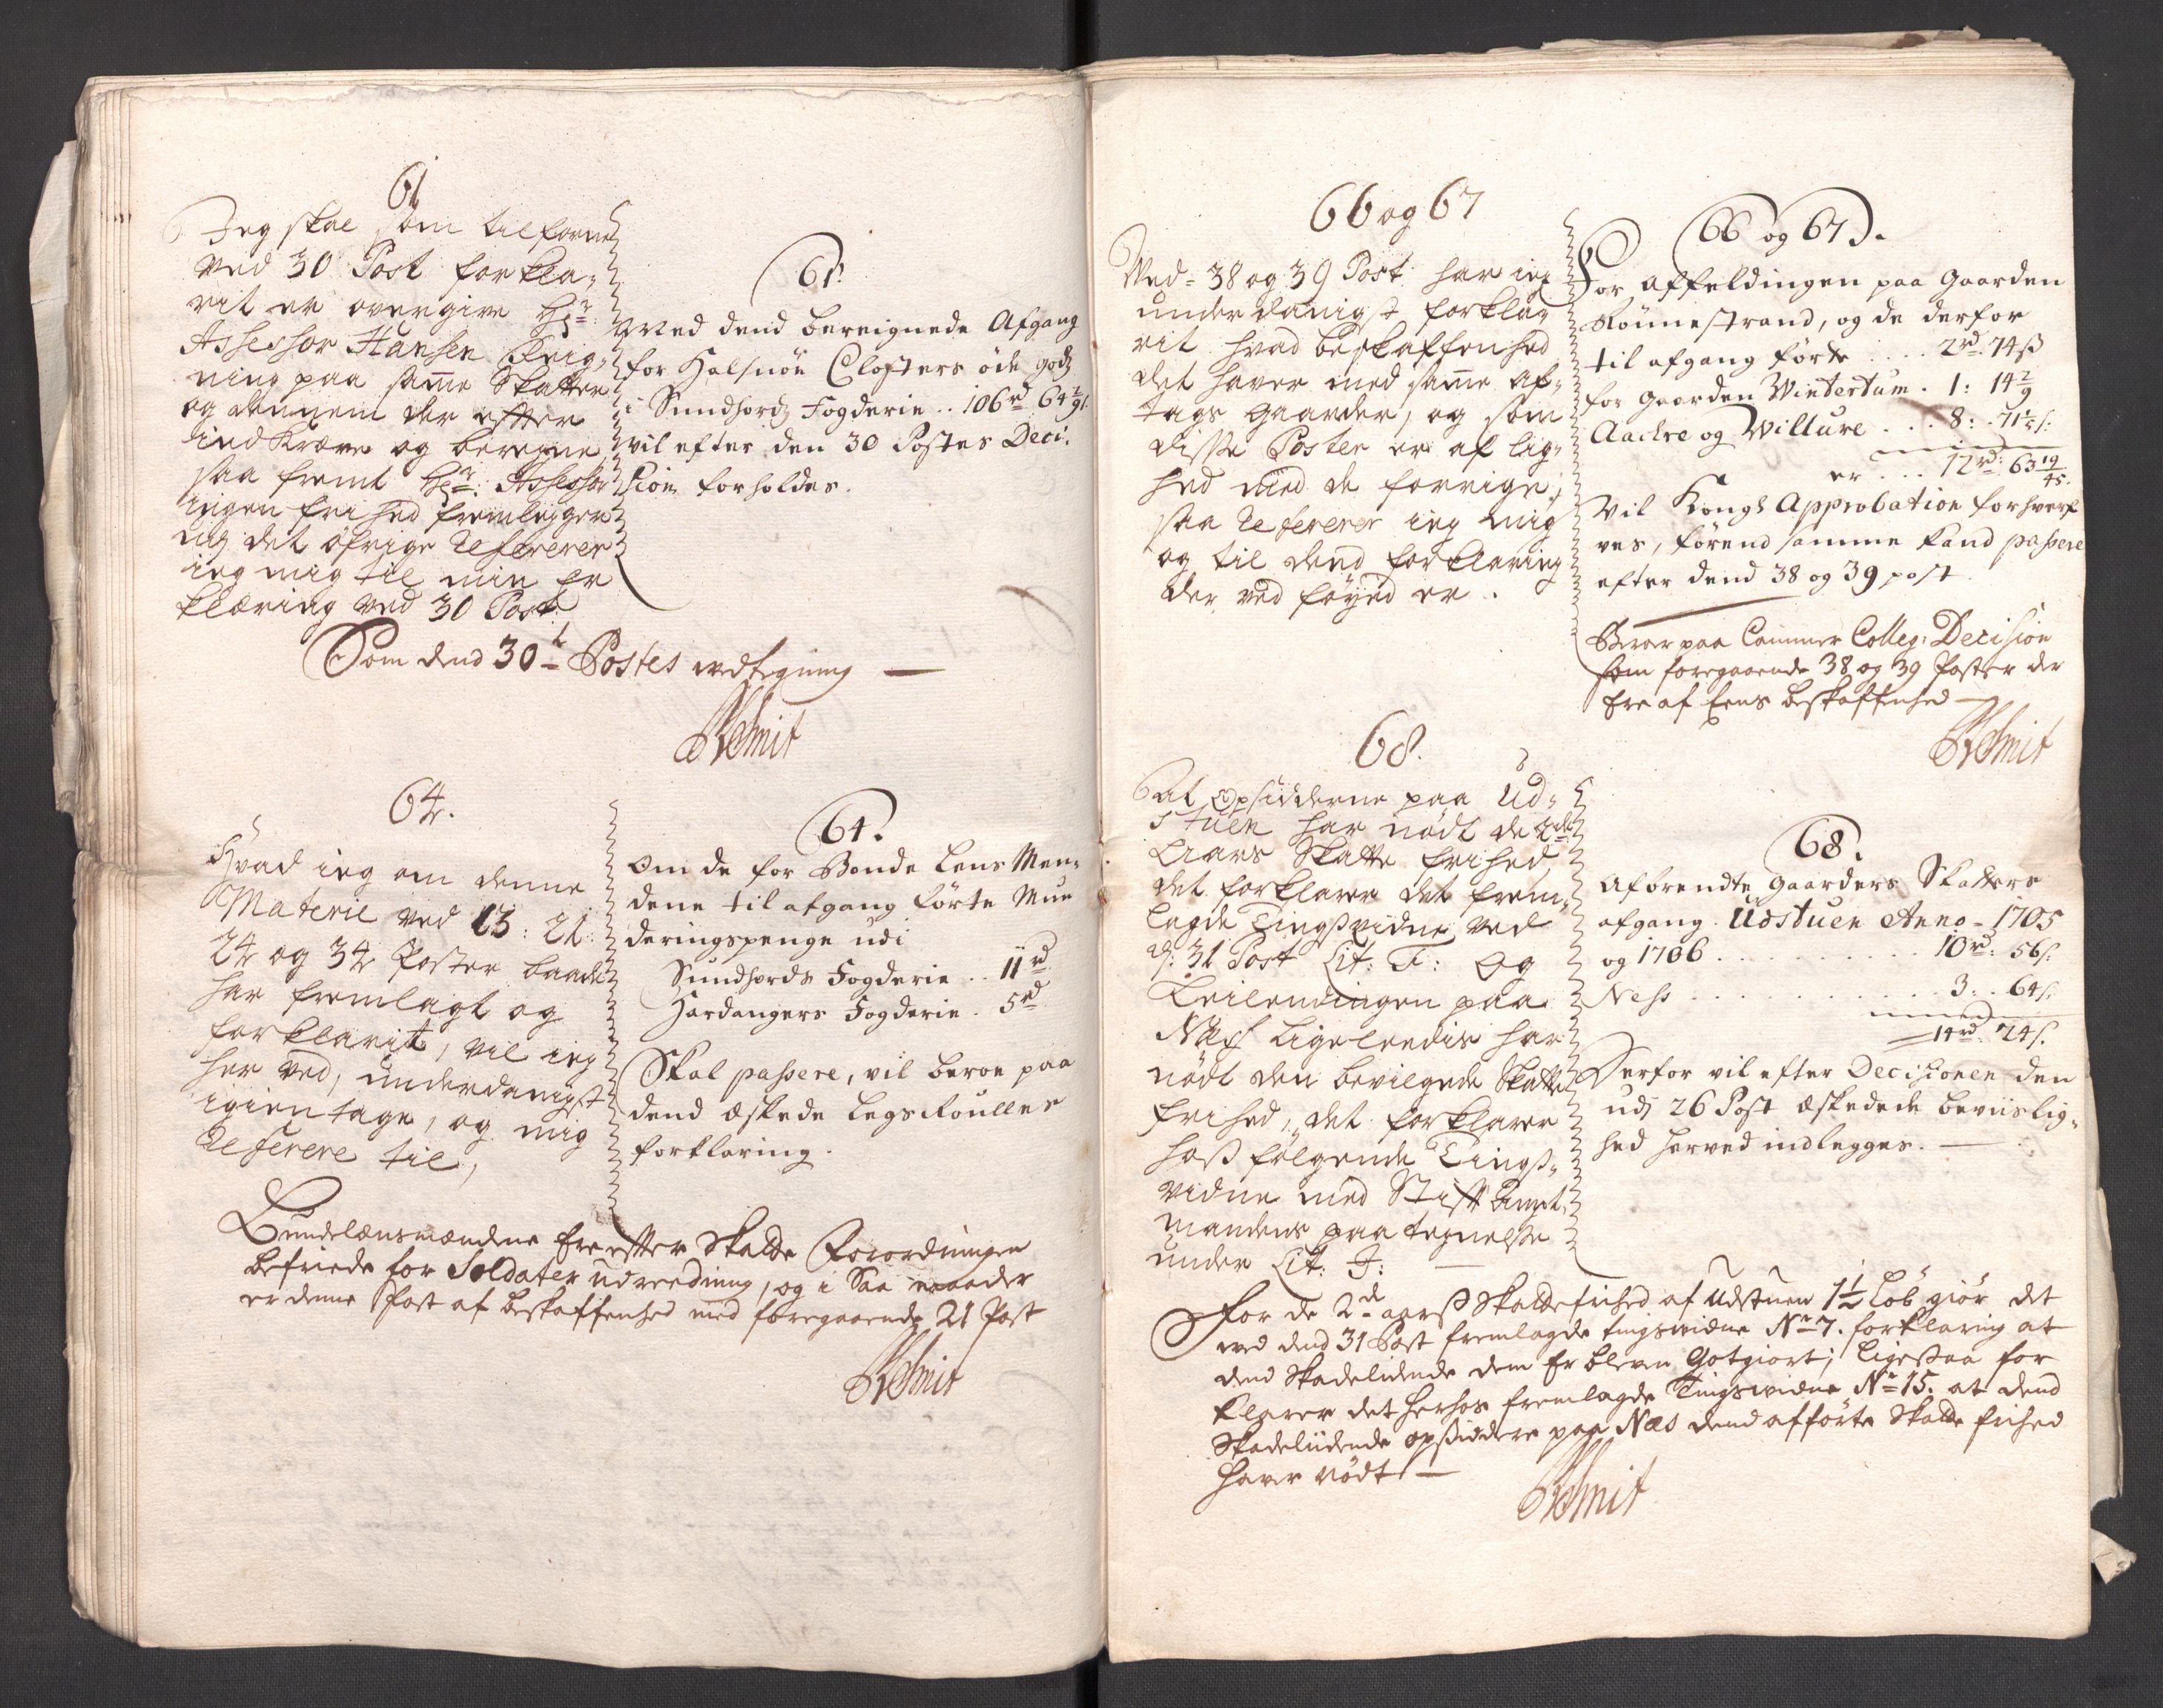 61
Jeg skal som tilforne
ved 30 Post forkla-
rit er overgive Hr:
Assessor Hansen
ning paa samme Skatter
og dennem der efter
ind Kræve og beregne
saa fremt Hr: Assessor
ingen frihed fremlegger
udj det øfrige Refererer
ieg mig til min Er
klæring ved 30 Post
61.
Med dend bereignede Afgang
for Halsnöe Closters öde godz
i Sundhordz Fogderie .. 106rd 64
vil efter den 30 Postes Deci-
sion forholdes.
Som dend 30te Postes vedtegning —
Smit
64.
Hvad ieg om denne
Materie ved 13: 21:
24 og 34 Poster baade
har fremlagt og
forklarit, vil ieg
her ved, underdanigst
igien tage, og mig
Referere til,
64.
Om de for Bonde Lens Men-
dene til afgang förte Mun
deringspenge udi
Sundhords Fogderie .. 11rd
Hardangers Fogderie . 5rd
Skal passere, vil beroe paa
dend æskede Legs Roulles
forklaring.
Bundelænsmændene Ere efter Skatte Forordningen
befriede for Soldater udreedning, og i saa maader
er denne Post af beskaffenhed med foregaaende 21 Post
Smit
66 og 67
Ved 38 og 39 Post har ieg
underdanigst forkla-
rit hvad beskaffenhed
det haver med samme af-
tags gaarder, og som
disse Poster er af lig-
hed med de forrige,
saa Refererer ieg mig
og til dend forklaring
der ved föyed er.
66 og 67.
For affeldingen paa Gaarden
Rönnestrand, og de derfor
til afgang förte .... 2rd 74ß
for gaarden Wintertum . 1: 14 2/9
Aackre og Willure ... 8: 71 1/5 ß:
er ... 12rd: 63 19/45.
Vil Kongl Approbation forhverf
ves, förend samme kand passere
efter dend 38 og 39 post
Beror paa Cammer Colleg: Decision
som foregaaende 38 og 39 Poster der
Ere af Eens beskaffenhed —
Smit
68.
At Opsidderne paa Ud-
stuen har nödt de 2de
Aars Skatte frihed
det forklarer det frem-
lagde Tingsvidne ved
dj: 31 Post Lit: F: Og
Leilendingen paa
Næss ligeleedis har
nödt den bevilgede Skatte
frihed, det forklarer
hoß fölgende Tingß-
vidne med Stift Ampt-
mandens paategnelse
under Lit: J: —
68.
Afbrendte gaarders Skatters
afgang. Udstuen Anno 1705
og 1706 ........ 10rd: 56ß.
Ness .......... 3: . 64ß.
14rd: 24ß.
Derfor vil efter Decisionen den
udj 26 Post æskedede beviislig-
hed herved indlegges. —
For de 2de aarß Skattefrihed af Udstuen 1½ Löb giör det
ved dend 31 Post fremlagde tingsvidne No 7. forklaring at
dend Skadelidende dem Er bleven Gotgiort; ligesaa for
klarer det herhos fremlagde Tingsvidne No 15. at dend
Skadeliidende opsiddere paa Næs dend afförte Skatte frihed
haver nödt —
Smit